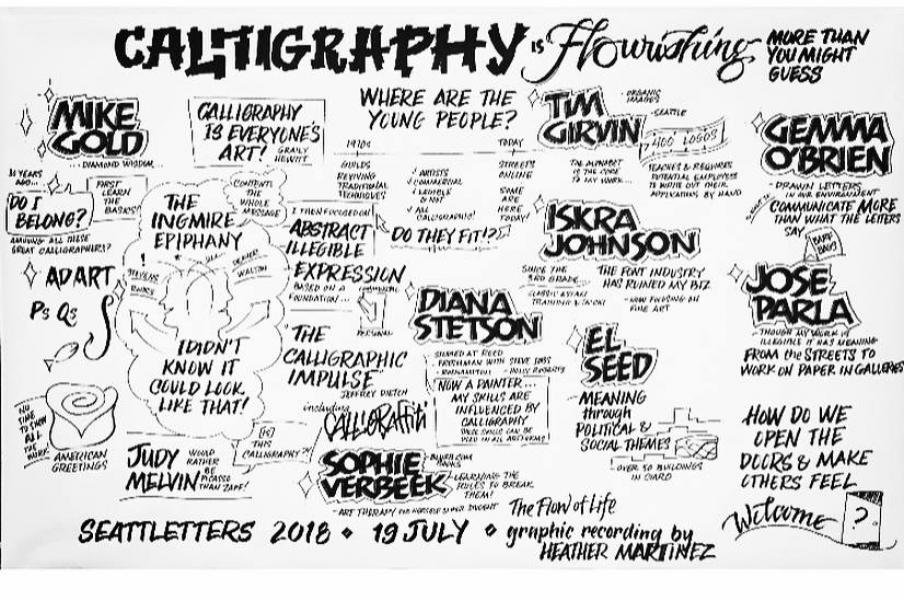 CALLIGRAPHY IS Flourishing
MORE THAN
YOU MIGHT
GUESS
MIKE
GOLD
... DIAMOND WISDOM ...
DO I
BELONG?
AMONG ALL THESE
GREAT CALLIGRAPHERS?
FIRST
LEARN
THE
BASICS!
AD ART
Ps Qs
AMERICAN
GREETINGS
CALLIGRAPHY
IS EVERYONE'S
ART!
GRAILY
HEWITT
THE
INGMIRE
EPIPHANY
CONTENT:
THE
WHOLE
MESSAGE
I DIDN'T
KNOW IT
COULD LOOK
LIKE THAT!
ABSTRACT
ILLEGIBLE
EXPRESSION
BASED ON A
FOUNDATION ...
PERSONAL
"THE
CALLIGRAPHIC
IMPULSE"
JEFFREY DIETCH
including
CALLIGRAFFITI
JUDY
MELVIN
WOULD
RATHER
BE
PICASSO
THAN ZAPF!
[IS]
THIS
CALLIGRAPHY?!
WHERE ARE THE
YOUNG PEOPLE?
1970s
TODAY
GUILDS
REVIVING
TRADITIONAL
TECHNIQUES
ARTISTS
COMMERCIAL
LEGIBLE
OR NOT
ALL
CALLIGRAPHIC!
STREETS
ONLINE
SOME
ARE
HERE
TODAY!
DO THEY FIT!?
DIANA
STETSON
NOW A PAINTER...
MY SKILLS ARE
INFLUENCED BY
CALLIGRAPHY
SOPHIE
VERBEEK
LEARNING THE
RULES TO BREAK
THEM!
The Flow of Life
TIM
GIRVIN
ORGANIC
IMAGES
SEATTLE
400 LOGOS
THE ALPHABET
IS THE CORE
TO MY WORK...
TEACHES & REQUIRES
POTENTIAL EMPLOYEES
TO WRITE OUT THEIR
APPLICATIONS BY HAND
ISKRA
JOHNSON
SINCE THE
3RD GRADE...
THE FONT INDUSTRY
HAS RUINED MY BIZ
- NOW FOCUSING ON
FINE ART
EL
SEED
- MEANING
through
POLITICAL &
SOCIAL THEMES
OVER 50 BUILDINGS
IN CAIRO
GEMMA
O'BRIEN
- DRAWN LETTERS
IN THE ENVIRONMENT
COMMUNICATE MORE
THAN WHAT THE LETTERS
SAY
BARF
BAG!
JOSE
PARLA
- THOUGH MY WORK IS
ILLEGIBLE IT HAS MEANING
FROM the STREETS TO
WORK ON PAPER IN GALLERIES
HOW DO WE
OPEN THE
DOORS & MAKE
OTHERS FEEL
Welcome ?
SEATTLETTERS 2018 ◇ 19 JULY ◇ graphic recording by
HEATHER MARTINEZ